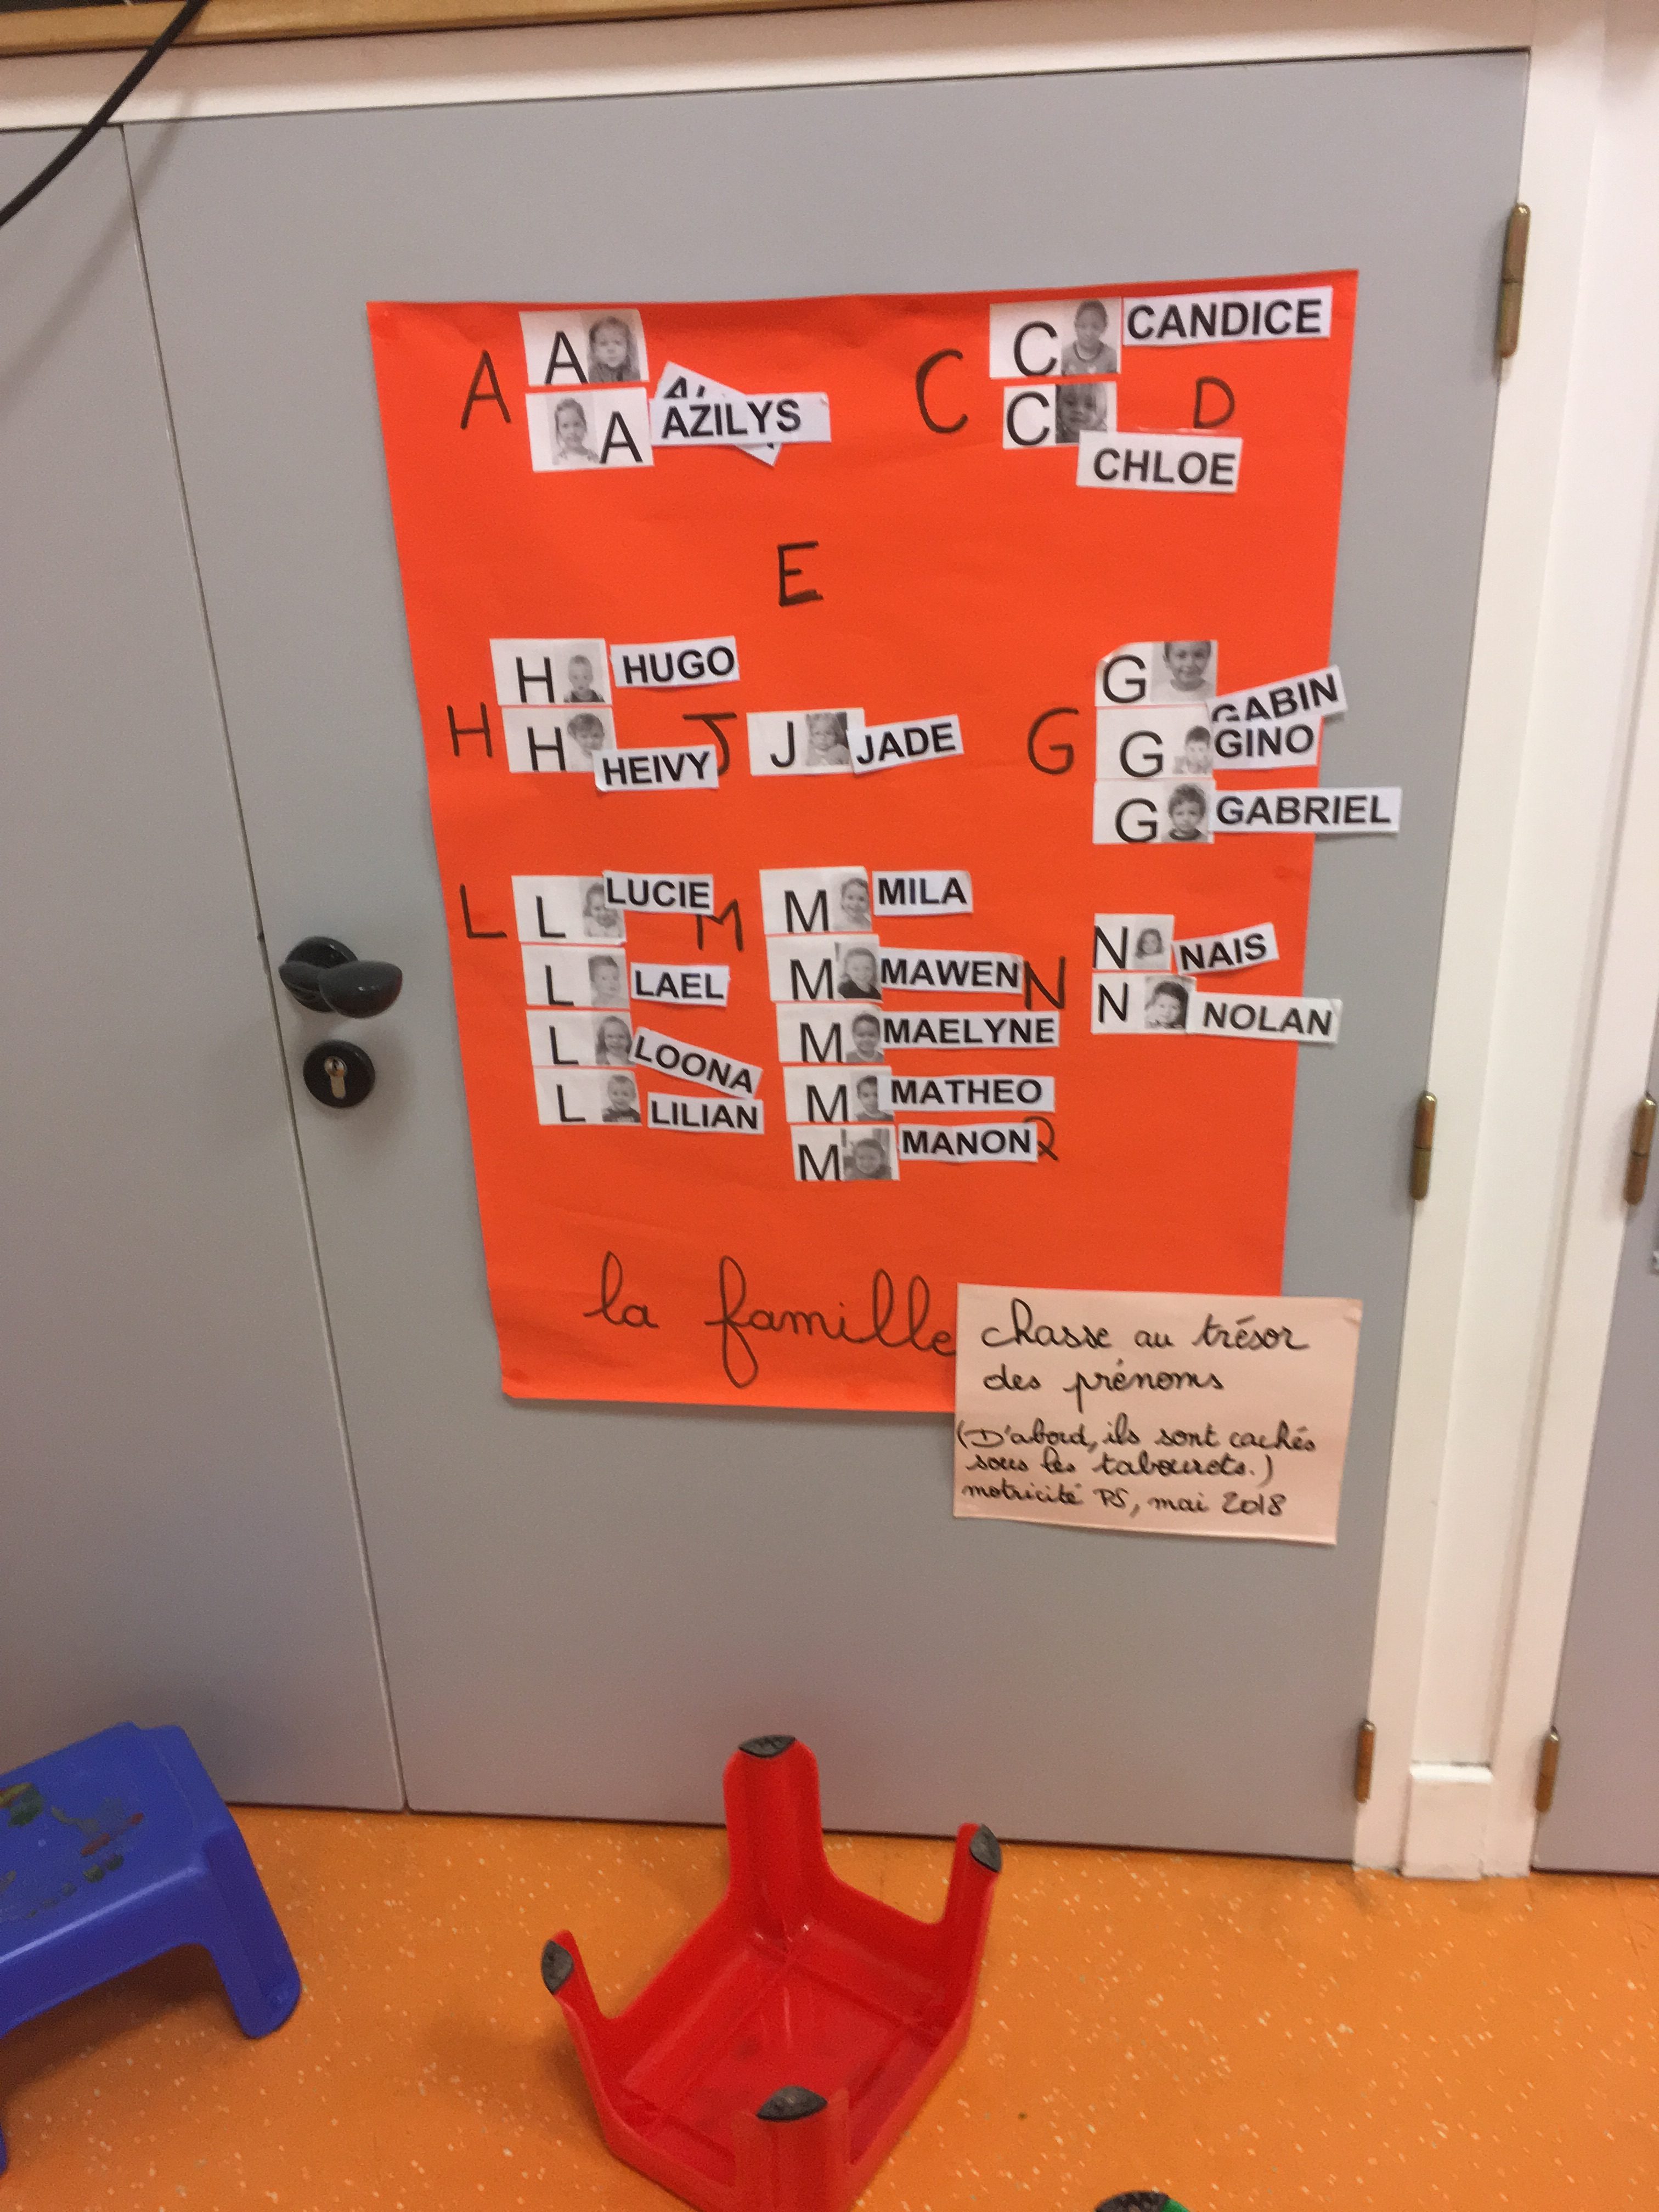 A A
A AZILYS
C C CANDICE
C CHLOE
D
E
H H HUGO
H HEIVY
J J JADE
G G GABIN
G GINO
G GABRIEL
L L LUCIE
L LAEL
L LOONA
L LILIAN
M M MILA
M MAWEN
M MAELYNE
M MATHEO
M MANON
N N NAIS
N NOLAN
la famille
chasse au trésor
des prénoms
(D'abord, ils sont cachés
sous les tabourets.)
motricité PS, mai 2018